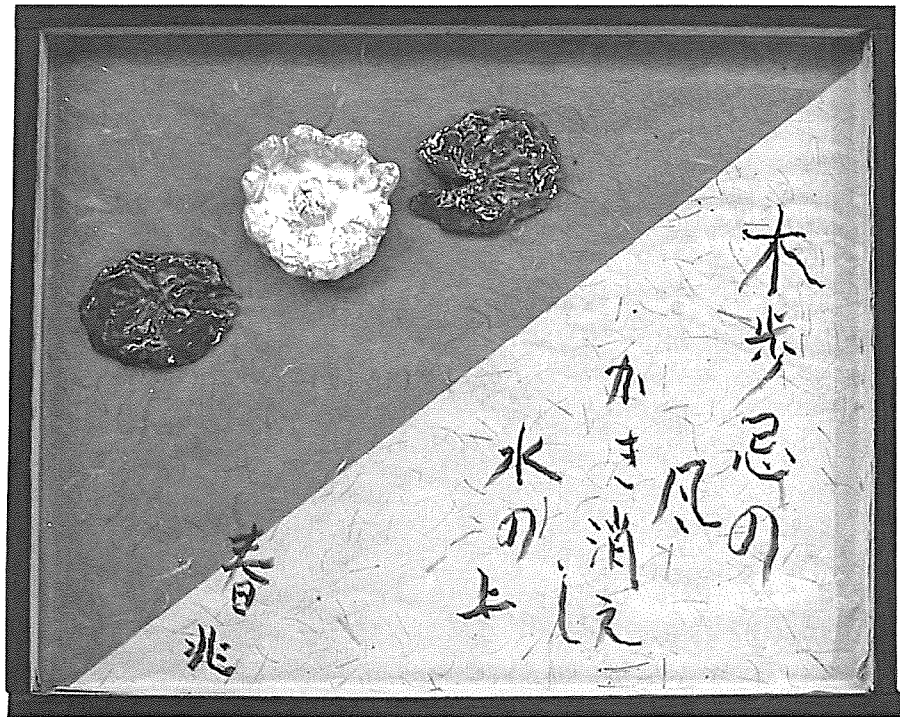 木歩忌の
風
かき消えし
水の上
春兆